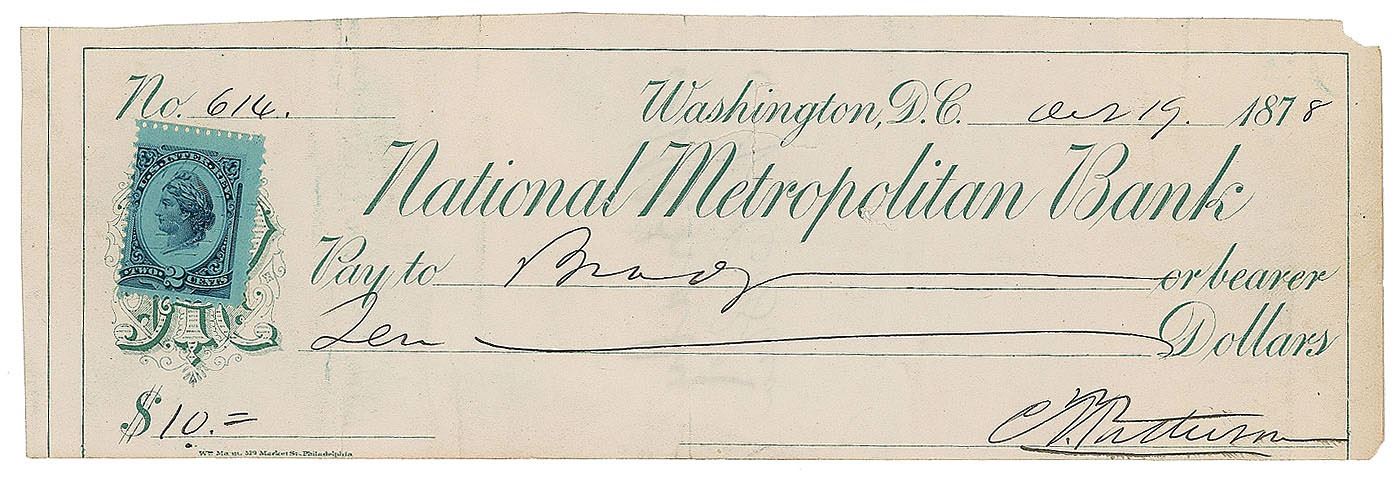 No. 614. Washington, D.C. Oct 19. 1878
U.S. INTER. REV.
TWO 2 CENTS
National Metropolitan Bank
Pay to Brady or bearer
Ten Dollars
$10.=
C. Patterson
Wm Mann, 529 Market St. Philadelphia